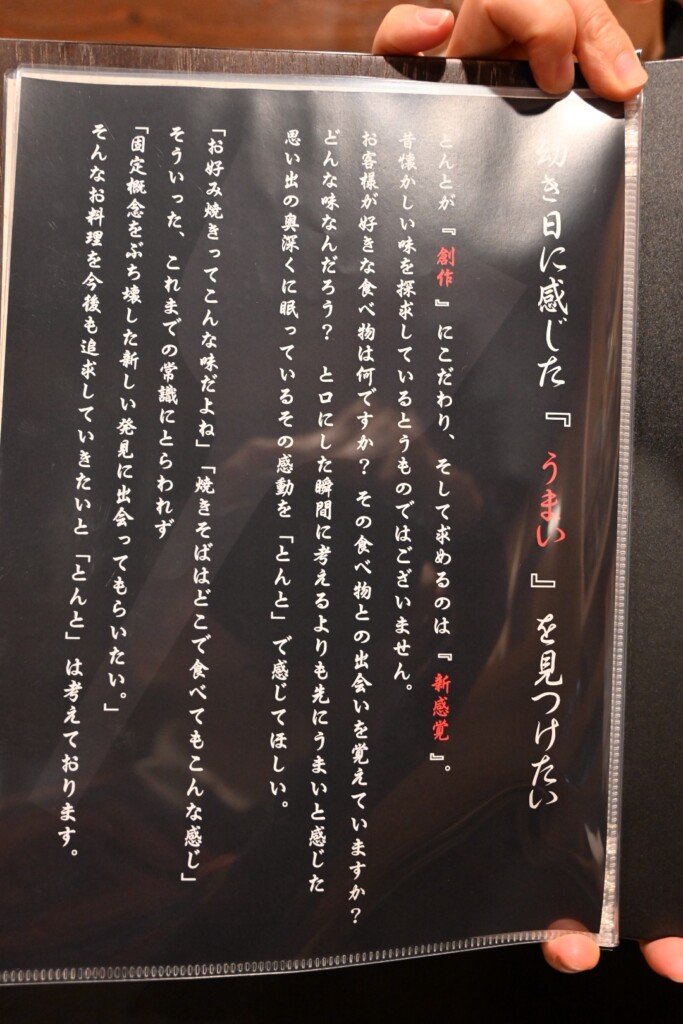 幼き日に感じた『うまい』を見つけたい
とんとが『創作』にこだわり、そして求めるのは『新感覚』。
昔懐かしい味を探求しているとうものではございません。
お客様が好きな食べ物は何ですか？その食べ物との出会いを覚えていますか？
どんな味なんだろう？　と口にした瞬間に考えるよりも先にうまいと感じた
思い出の奥深くに眠っているその感動を「とんと」で感じてほしい。
「お好み焼きってこんな味だよね」「焼きそばはどこで食べてもこんな感じ」
そういった、これまでの常識にとらわれず
「固定概念をぶち壊した新しい発見に出会ってもらいたい。」
そんなお料理を今後も追求していきたいと「とんと」は考えております。